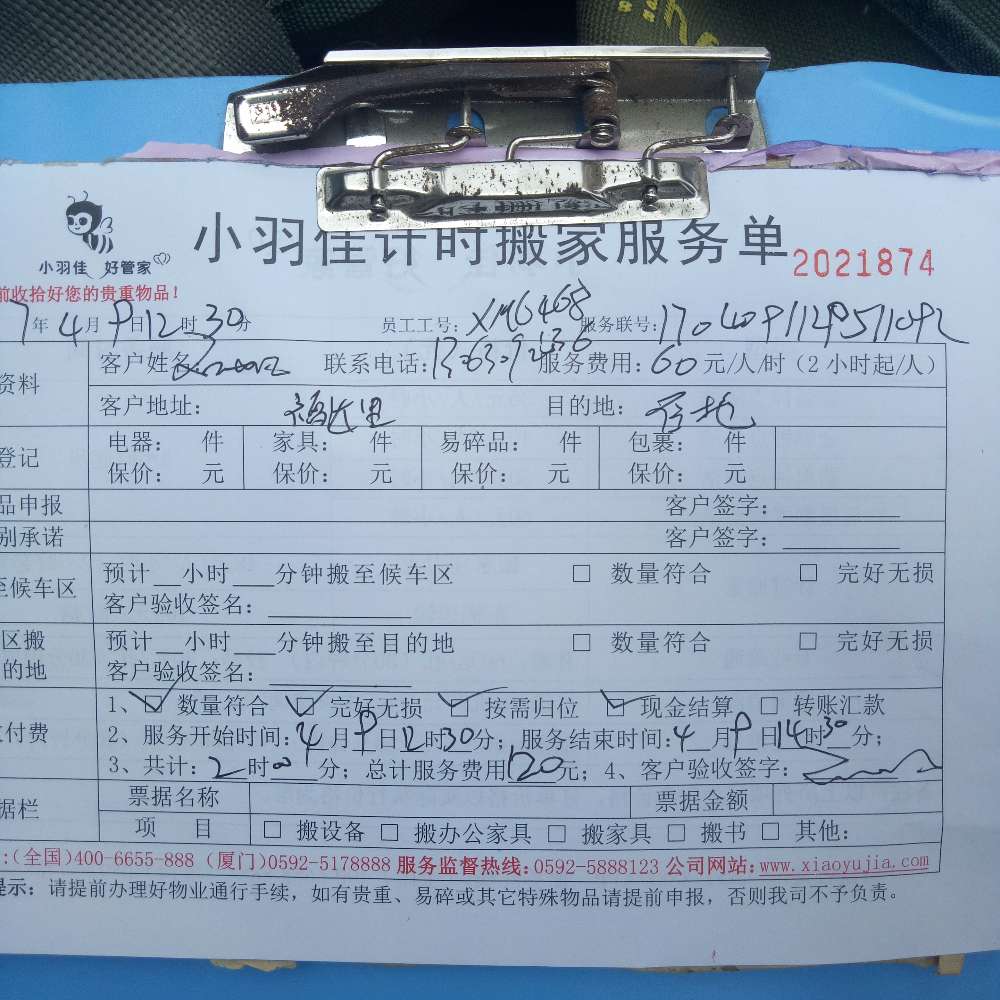 小羽佳计时搬家服务单
2021874
小羽佳 好管家
前收拾好您的贵重物品!
7年4月9日12时30分 员工工号:XM6468 服务联号:
资料 客户姓名 联系电话: 服务费用:60元/人/时(2小时起/人)
客户地址: 目的地:
登记 电器: 件 家具: 件 易碎品: 件 包裹: 件
保价: 元 保价: 元 保价: 元 保价: 元
品申报 客户签字:
别承诺 客户签字:
至候车区 预计__小时___分钟搬至候车区 □ 数量符合 □ 完好无损
客户验收签名:
区搬 预计__小时___分钟搬至目的地 □ 数量符合 □ 完好无损
的地 客户验收签名:
付费 1、☑ 数量符合 ☑ 完好无损 ☑ 按需归位 ☑ 现金结算 □ 转账汇款
2、服务开始时间:4月9日12时30分;服务结束时间:4月9日14时30分;
3、共计:2时00分;总计服务费用120元;4、客户验收签字:
据栏 票据名称 票据金额
项 目 □ 搬设备 □ 搬办公家具 □ 搬家具 □ 搬书 □ 其他:
:(全国)400-6655-888(厦门)0592-5178888 服务监督热线:0592-5888123 公司网站:www.xiaoyujia.com
提示:请提前办理好物业通行手续,如有贵重、易碎或其它特殊物品请提前申报,否则我司不予负责。